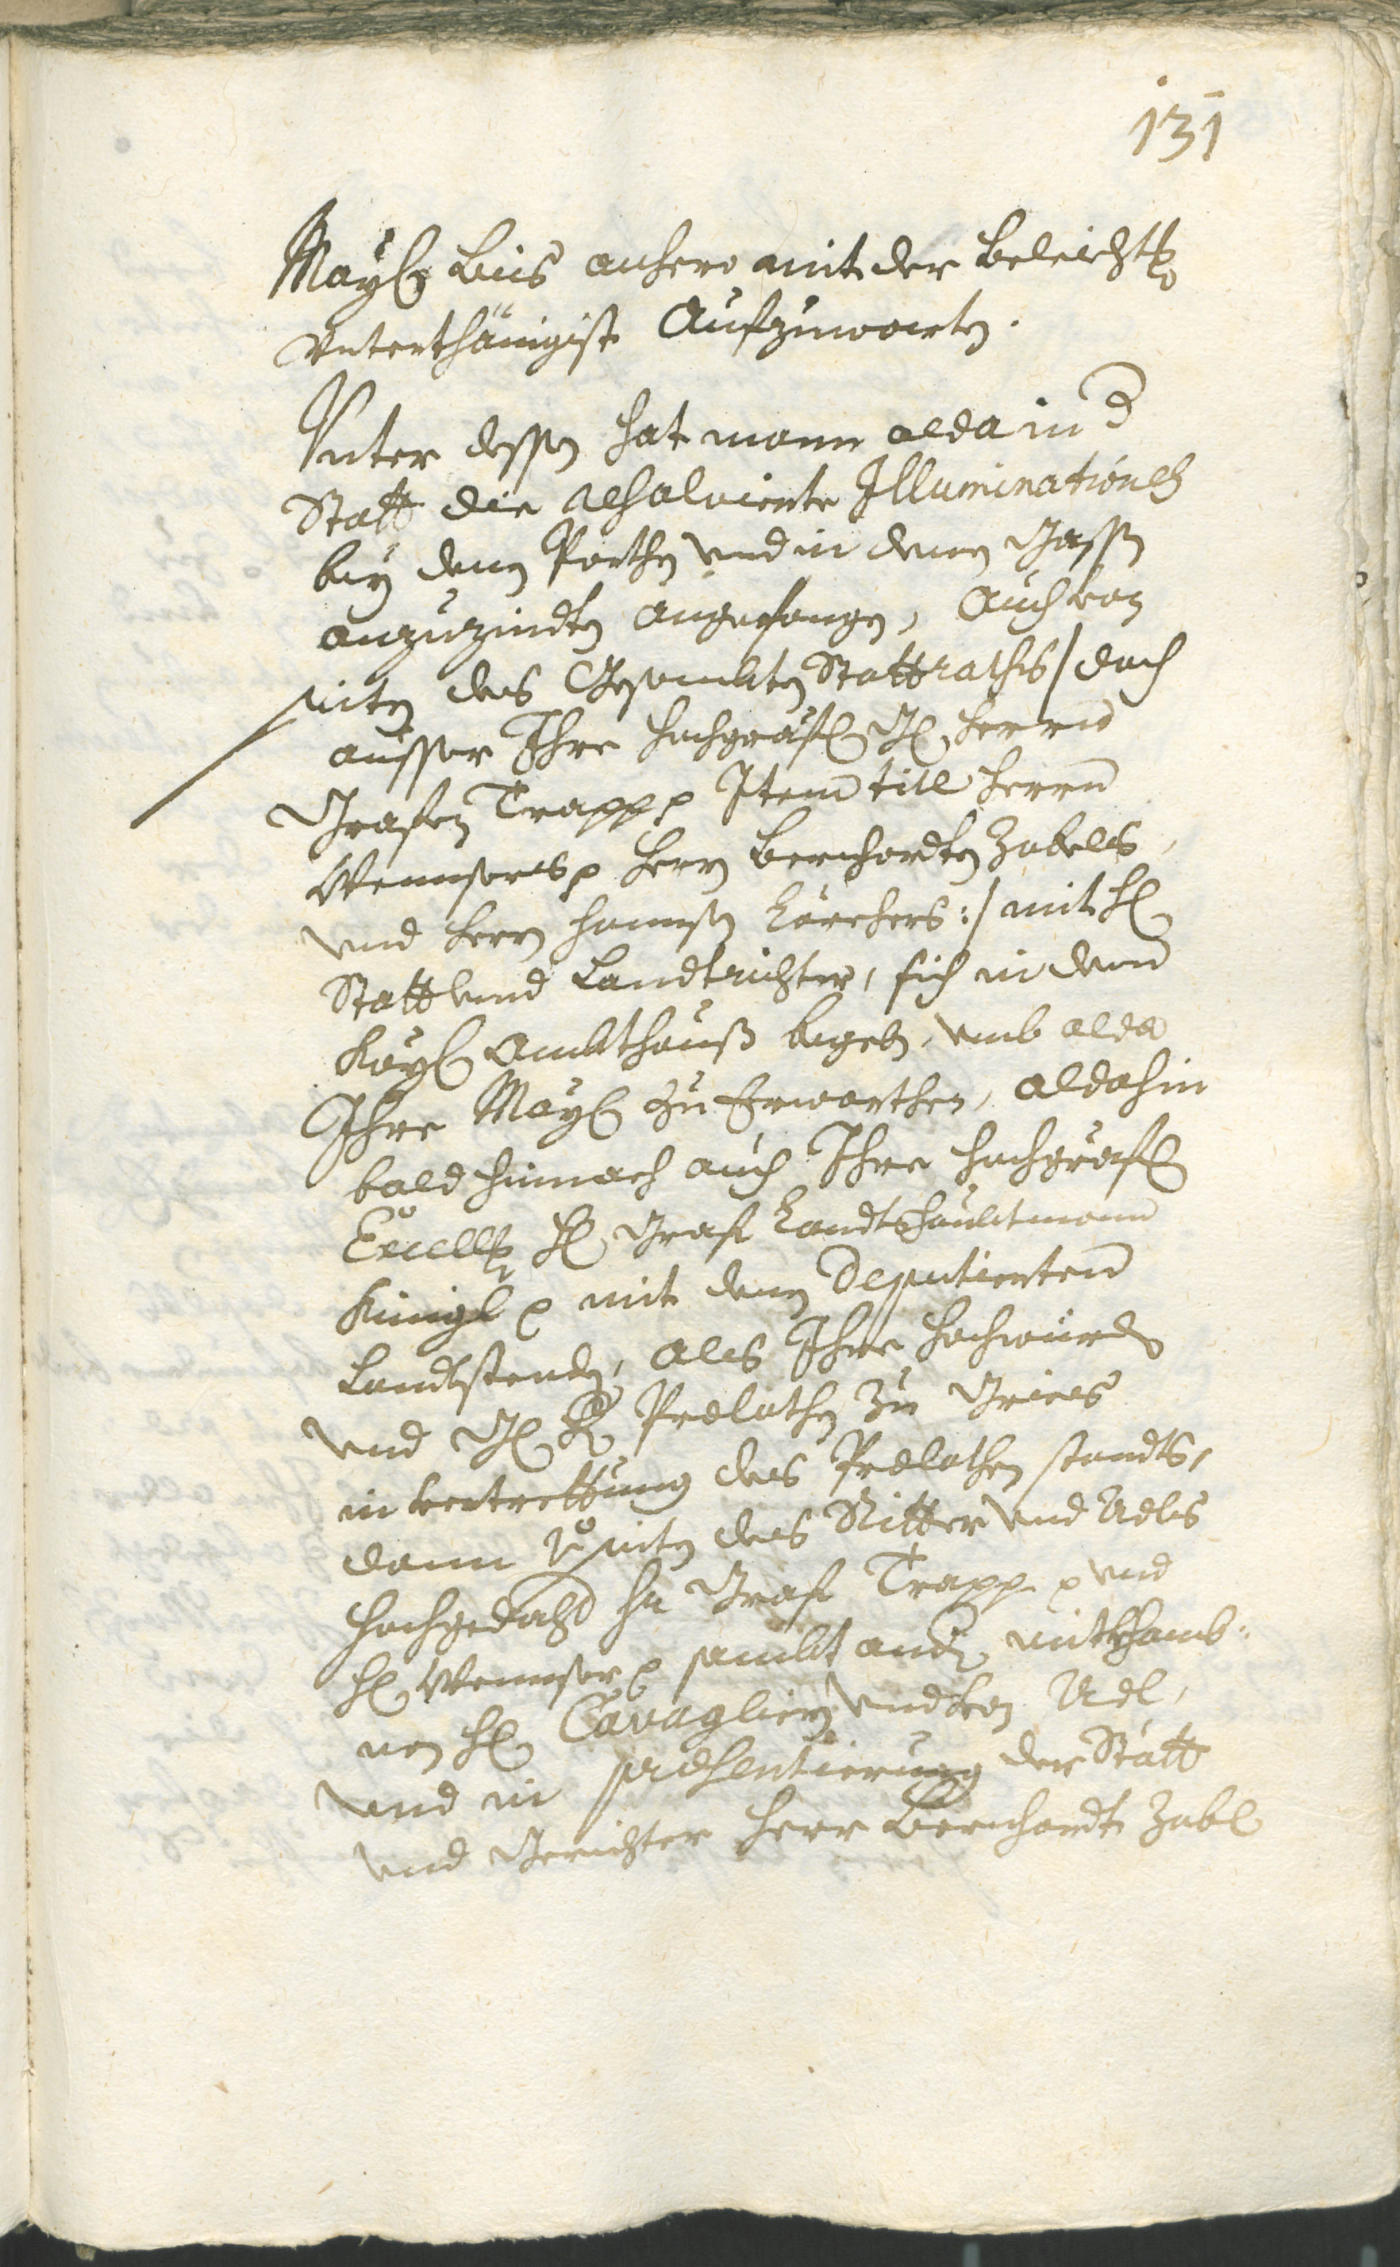 131
Mayl. bis anhero mit der beleicht
Unterthänigist Aufzuwarten.
Unter dessen hat mann alda in d
Statt die resolvierte Illuminationen
bey denen Porthen und in denen Gassen
anzuzindten angefangen, auch von
seiten des Gesambten Stattraths / doch
ausser Ihre hochgräfl. G. herrn
Grafen Trapp p Item titl herrn
Wennsers p herrn Bernhardten Zabels
und herrn Hannsen Lörchers :/ mit H.
Statt und Landtrichter, sich in dem
Kayl. Ambthauß begeben, umb alda
Ihre Mayl. zu Erwarthen, aldahin
bald hinnach auch Ihre hochgräfl.
Excell. H. Graf Landtshaubtmann
Künigl p mit denen Deputierten
Landtstenden, als Ihre hochwürden
und G. H. Prelathen zu Gries
in vertrettung des Prelathen standts,
dann seiten des Ritter und Adls
hochgedacht Hr Graf Trapp p und
H. Wennser p sambt andern mitkhomb-
nen H. Cavaglieren und von Adl,
und in presentierung der Statt
und Gerichter herr Bernhardt Zabl